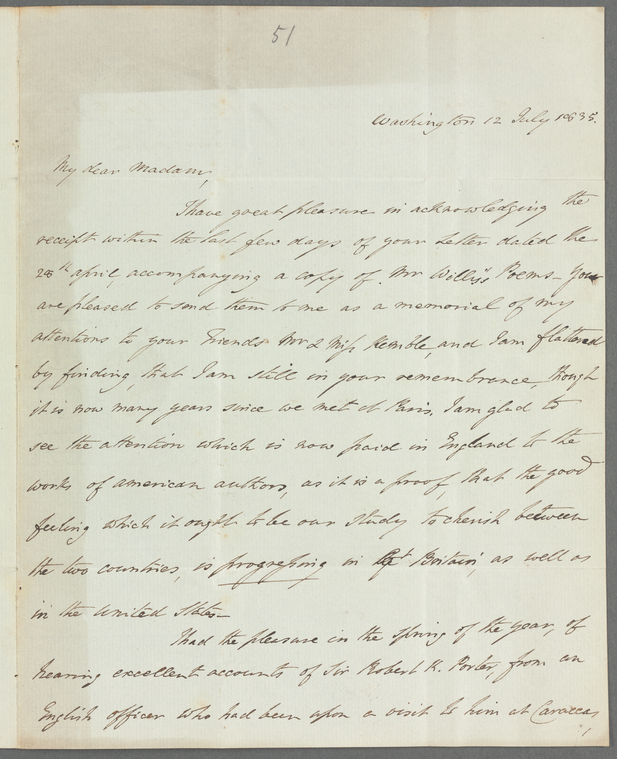 51
Washington 12 July 1835.
My dear Madam,
I have great pleasure in acknowledging the
receipt within the last few days of your Letter dated the
28th april, accompanying a copy of Mr Willis's Poems - You
are pleased to send them to me as a memorial of my
attentions to your Friends Mr & Miss Kemble, and I am flattered
by finding, that I am still in your remembrance though
it is now many years since we met at Paris. I am glad to
see the attention which is now paid in England to the
works of american authors, as it is a proof, that the good
feeling which it ought to be our study to cherish between
the two countries, is progressing in Gt Britain, as well as
in the United States -
I had the pleasure in the spring of the year, of
hearing excellent accounts of Sir Robert K. Porter, from an
English officer who had been upon a visit to him at Caraccas,